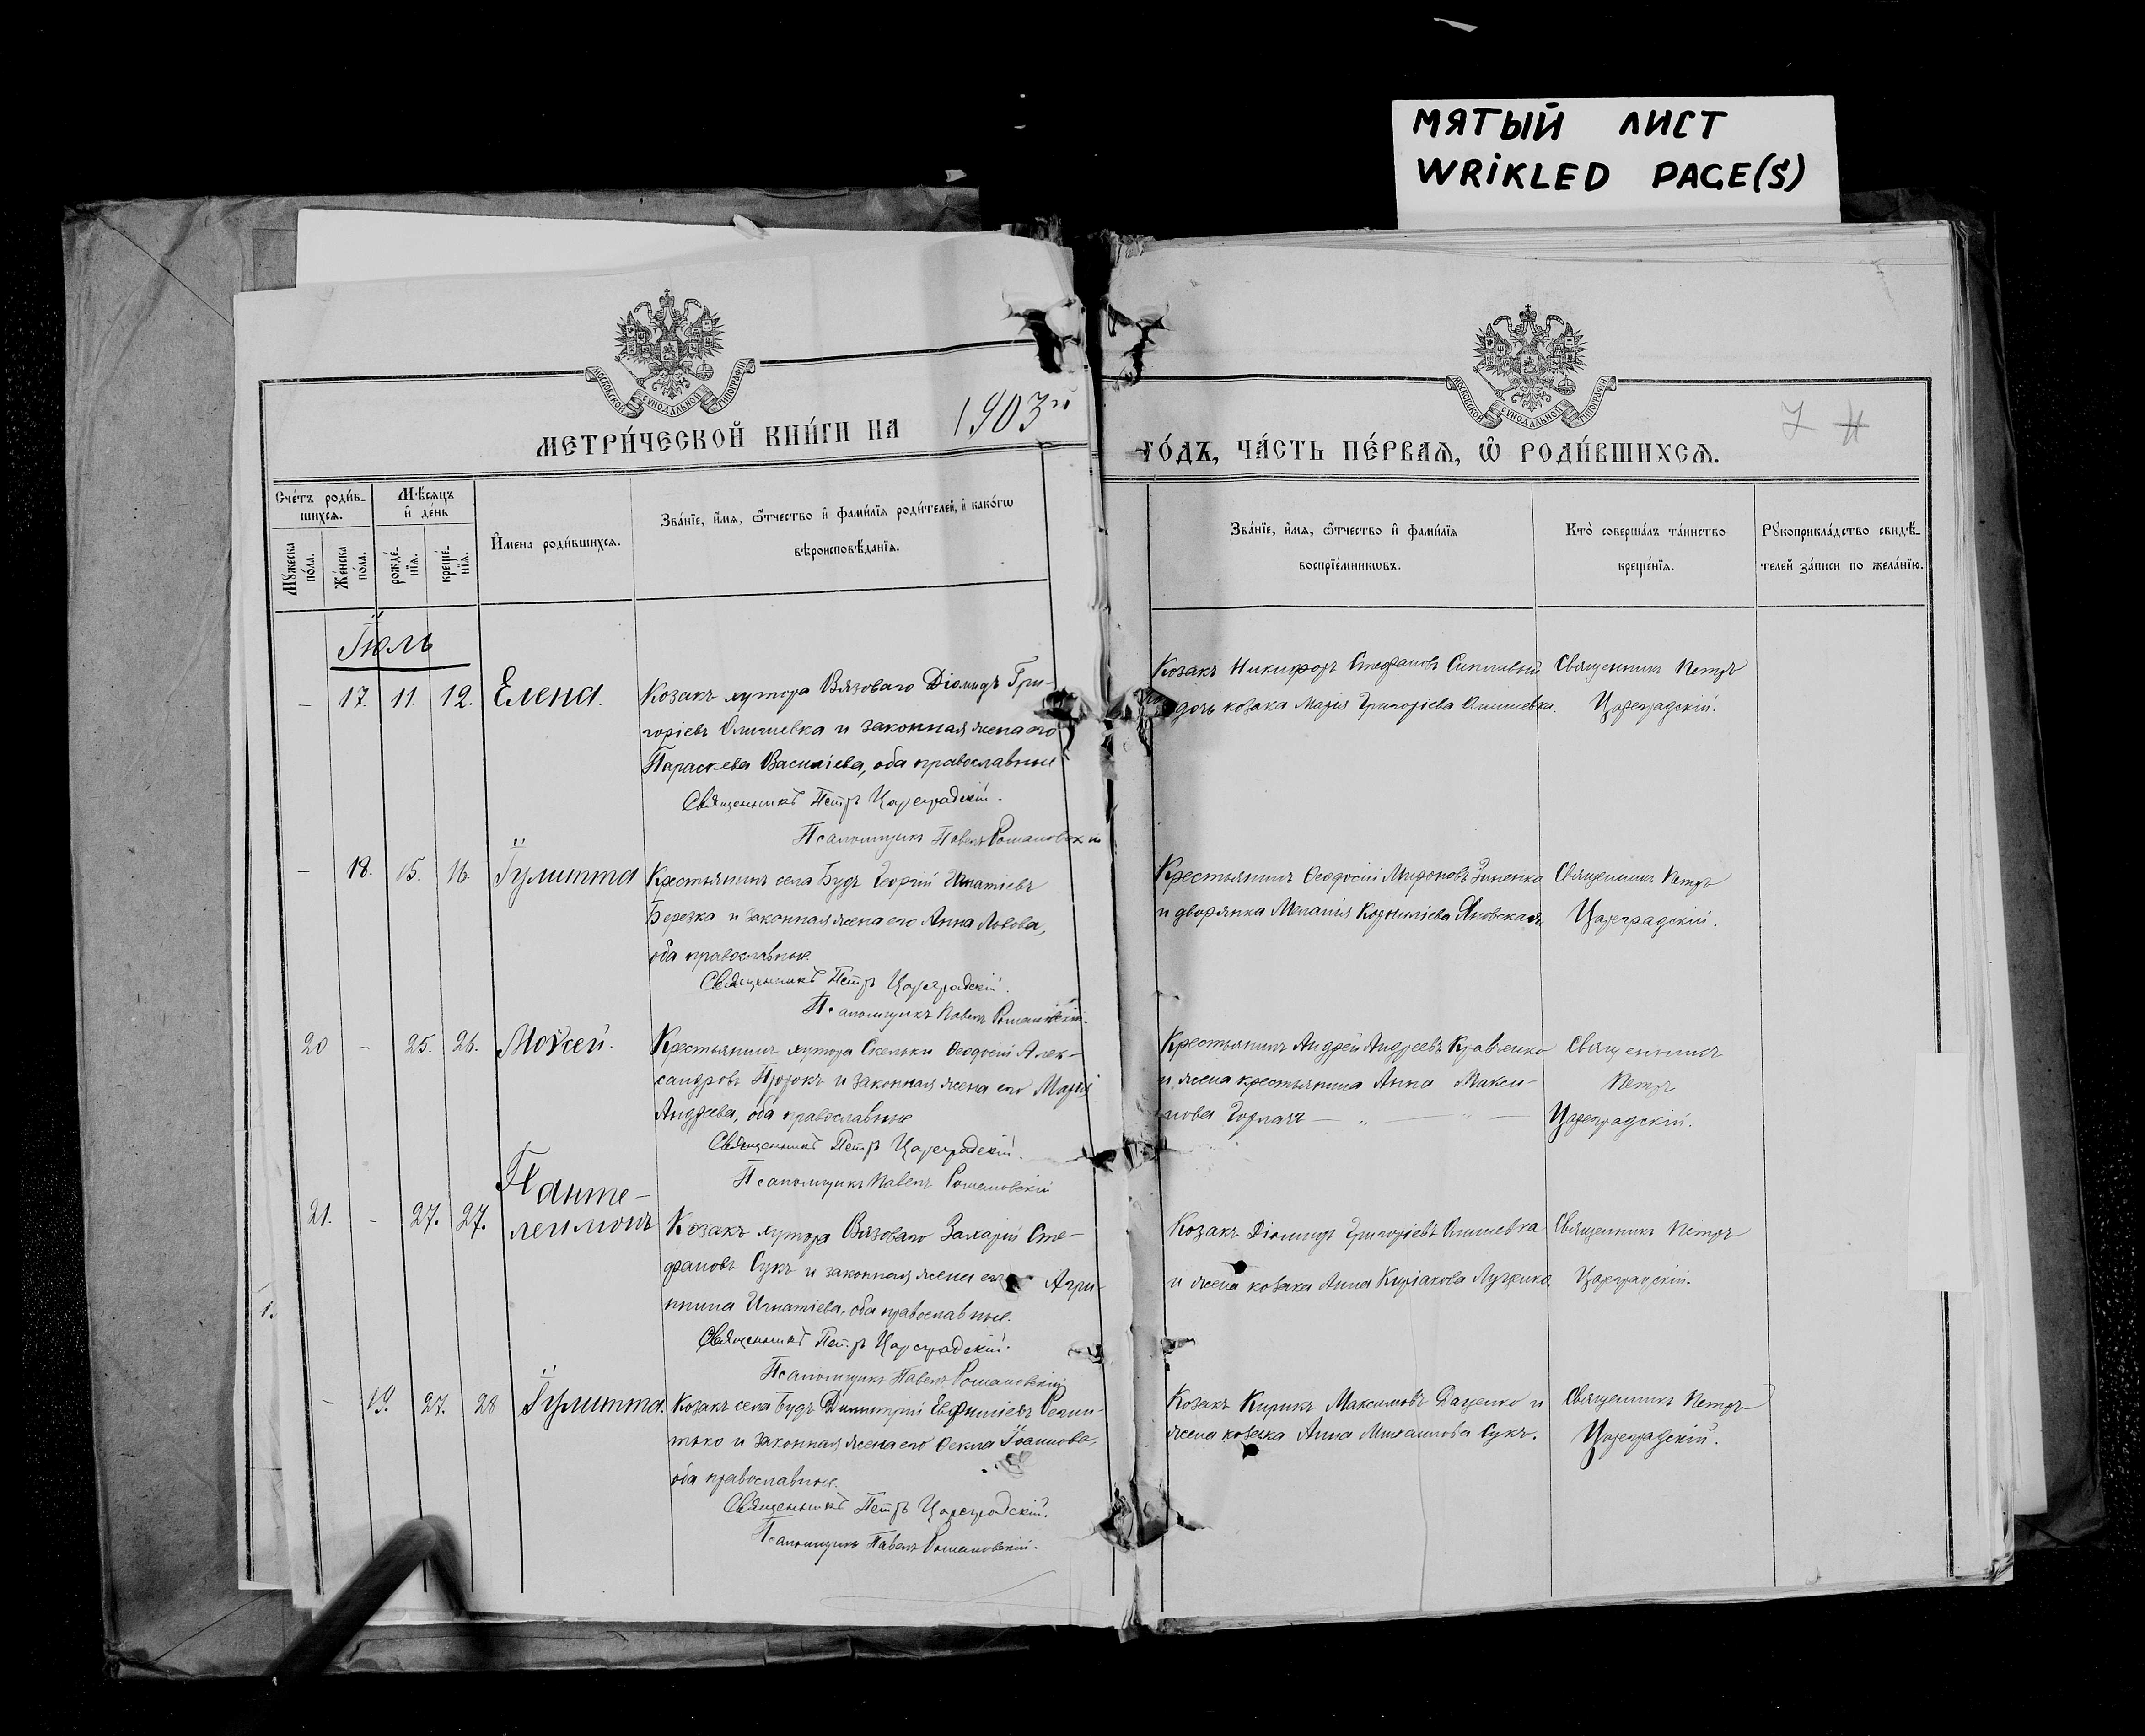 МЯТЫЙ ЛИСТ
WRIKLED PAGE(S)
МОСКОВСКОЙ СУНОДАЛЬНОЙ ТИПОГРАФІИ
МОСКОВСКОЙ СУНОДАЛЬНОЙ ТИПОГРАФІИ
МЕТРИ́ЧЕСКОЙ КНИ́ГИ НА 1903й
ГО́ДЪ, ЧА́СТЬ ПЕ́РВАѦ, Ѡ҆ РОДИ́ВШИХСѦ.
7
Сче́тъ роди́в-
шихсѧ.
Мѣ́сяцъ
и҆ де́нь
Мꙋ́жеска
по́ла.
Же́нска
по́ла.
рожде́-
нїѧ.
креще́-
нїѧ.
И҆мена роди́вшихсѧ.
Зва́нїе, и҆́мѧ, ѻ҆́тчество и҆ фами́лїѧ роди́телей, и҆ како́гѡ
вѣроисповѣ́данїѧ.
Зва́нїе, и҆́мѧ, ѻ҆́тчество и҆ фами́лїѧ
воспрїе́мникѡвъ.
Кто̀ соверша́лъ та́инство
креще́нїѧ.
Рꙋкоприкла́дство свидѣ́-
телей за́писи по жела́нїю.
Іюль
– 17. 11. 12. Елена.
Козакъ хутора Вязоваго Діомидъ Гри-
горіевъ Олишевка и законная жена его
Параскева Василіева, оба православные
Священникъ Петръ Цареградскій.
Псаломщикъ Павелъ Романовскій
Козакъ Никифоръ Стефановъ Сипливый
дочь козака Марія Григоріева Олишевка.
Священникъ Петръ
Цареградскій.
– 18. 15. 16. Іулитта
Крестьянинъ села Будъ Георгій Игнатіевъ
Березка и законная жена его Анна Львова,
оба православные.
Священникъ Петръ Цареградскій.
Псаломщикъ Павелъ Романовскій.
Крестьянинъ Ѳеодосій Мироновъ Зиненко
и дворянка Меланія Корниліева Яновская
Священникъ Петръ
Цареградскій.
20 – 25. 26. Моѵсей.
Крестьянинъ хутора Скельки Ѳеодосій Алек-
сандровъ Пророкъ и законная жена его Марія
Андреева, оба православные
Священникъ Петръ Цареградскій.
Псаломщикъ Павелъ Романовскій
Крестьянинъ Андрей Андреевъ Кравченко
и жена крестьянина Анна Макси-
мова Горлачъ — „ —
Священникъ
Петръ
Цареградскій.
21. – 27. 27. Панте-
леимонъ
Козакъ хутора Вязоваго Захарій Сте-
фановъ Сукъ и законная жена его Агри-
пина Игнатіева, оба православные.
Священникъ Петръ Цареградскій.
Псаломщикъ Павелъ Романовскій
Козакъ Діомидъ Григоріевъ Олишевка
и жена козака Анна Киріакова
Священникъ Петръ
Цареградскій.
1.
– 19. 27. 28 Іулитта.
Козакъ села Будъ Димитрій Евфиміевъ
и законная жена его Ѳекла Іоаннова,
оба православные.
Священникъ Петръ Цареградскій.
Псаломщикъ Павелъ Романовскій.
Козакъ Кирикъ Максимовъ Даценко и
жена козака Анна Михаилова Сукъ.
Священникъ Петръ
Цареградскій.